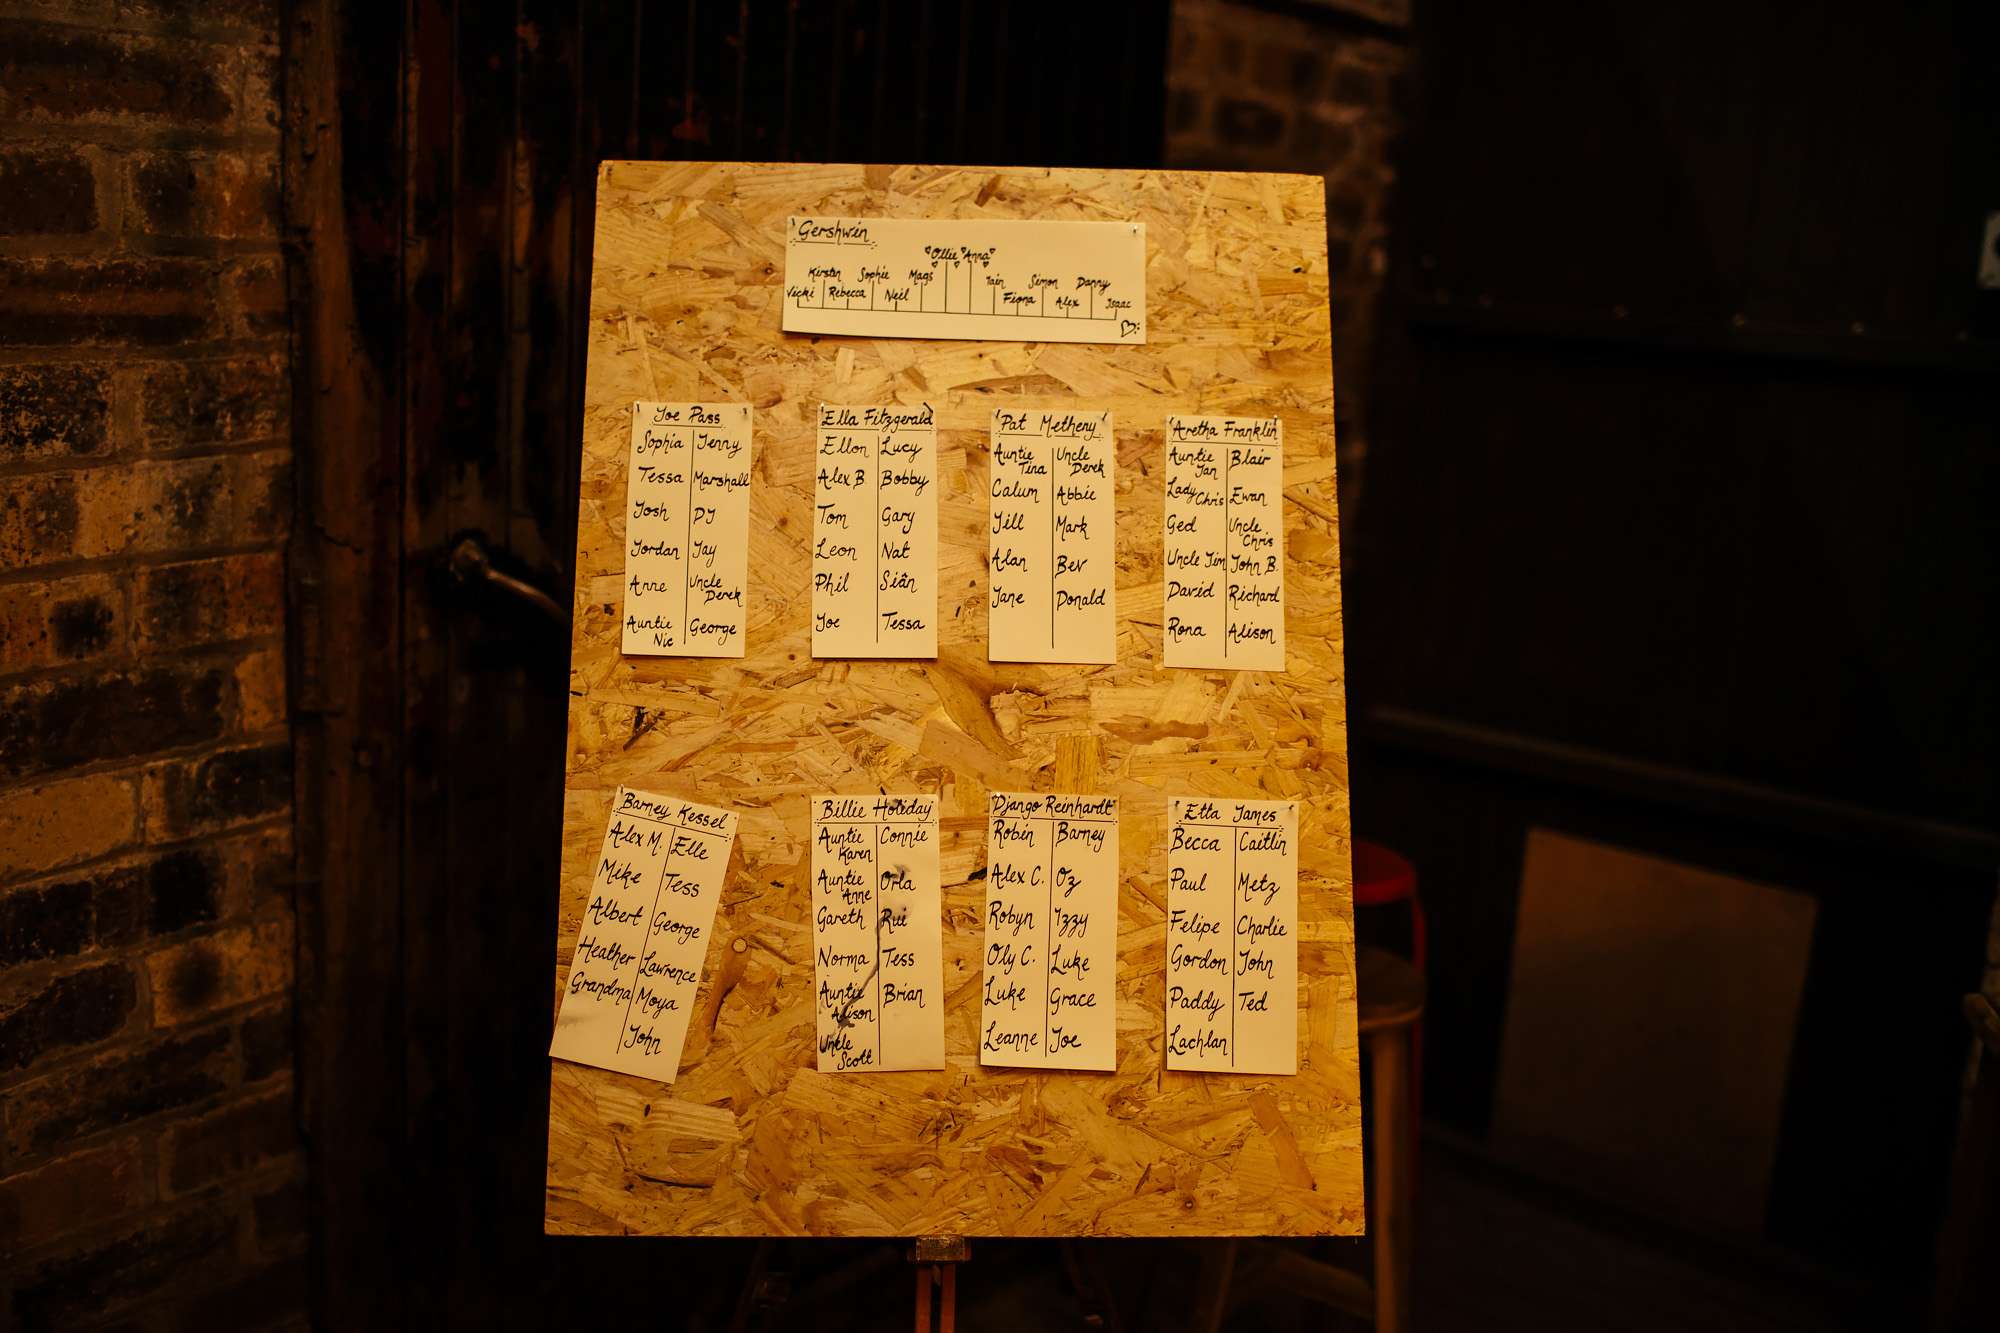 Gershwin
Ollie Anna
Kirsten Sophie Mags Iain Simon Danny
Vicki Rebecca Neil Fiona Alex Isaac
Joe Pass
Sophia Jenny
Tessa Marshall
Josh DJ
Jordan Jay
Anne Uncle Derek
Auntie Nic George
Ella Fitzgerald
Ellon Lucy
Alex B Bobby
Tom Gary
Leon Nat
Phil Siân
Joe Tessa
Pat Metheny
Auntie Tina Uncle Derek
Calum Abbie
Jill Mark
Alan Bev
Jane Donald
Aretha Franklin
Auntie Jan Blair
Lady Chris Ewan
Ged Uncle Chris
Uncle Jim John B.
David Richard
Rona Alison
Barney Kessel
Alex M. Elle
Mike Tess
Albert George
Heather Lawrence
Grandma Moya
John
Billie Holiday
Auntie Karen Connie
Auntie Anne Orla
Gareth Rui
Norma Tess
Auntie Alison Brian
Uncle Scott
Django Reinhardt
Robin Barney
Alex C. Oz
Robyn Izzy
Oly C. Luke
Luke Grace
Leanne Joe
Etta James
Becca Caitlin
Paul Metz
Felipe Charlie
Gordon John
Paddy Ted
Lachlan